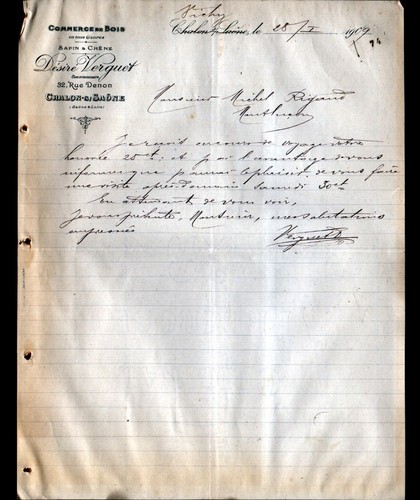 COMMERCE DE BOIS
EN TOUS GENRES
SAPIN & CHÊNE
Désiré Verguet
32, Rue Denon
CHALON-S/SAÔNE
(SAÔNE & LOIRE)
Vichy
Chalon s/ Saône, le 28/I 1909
74
Monsieur Michel Rigaud
Montluçon
Je reçois en cours de voyage votre
honorée 25 ct; et j'ai l'avantage de vous
informer que j'aurai le plaisir de vous faire
une visite après demain Samedi 30 ct
En attendant de vous voir,
Je vous présente, Monsieur, mes salutations
empressées
Verguet D